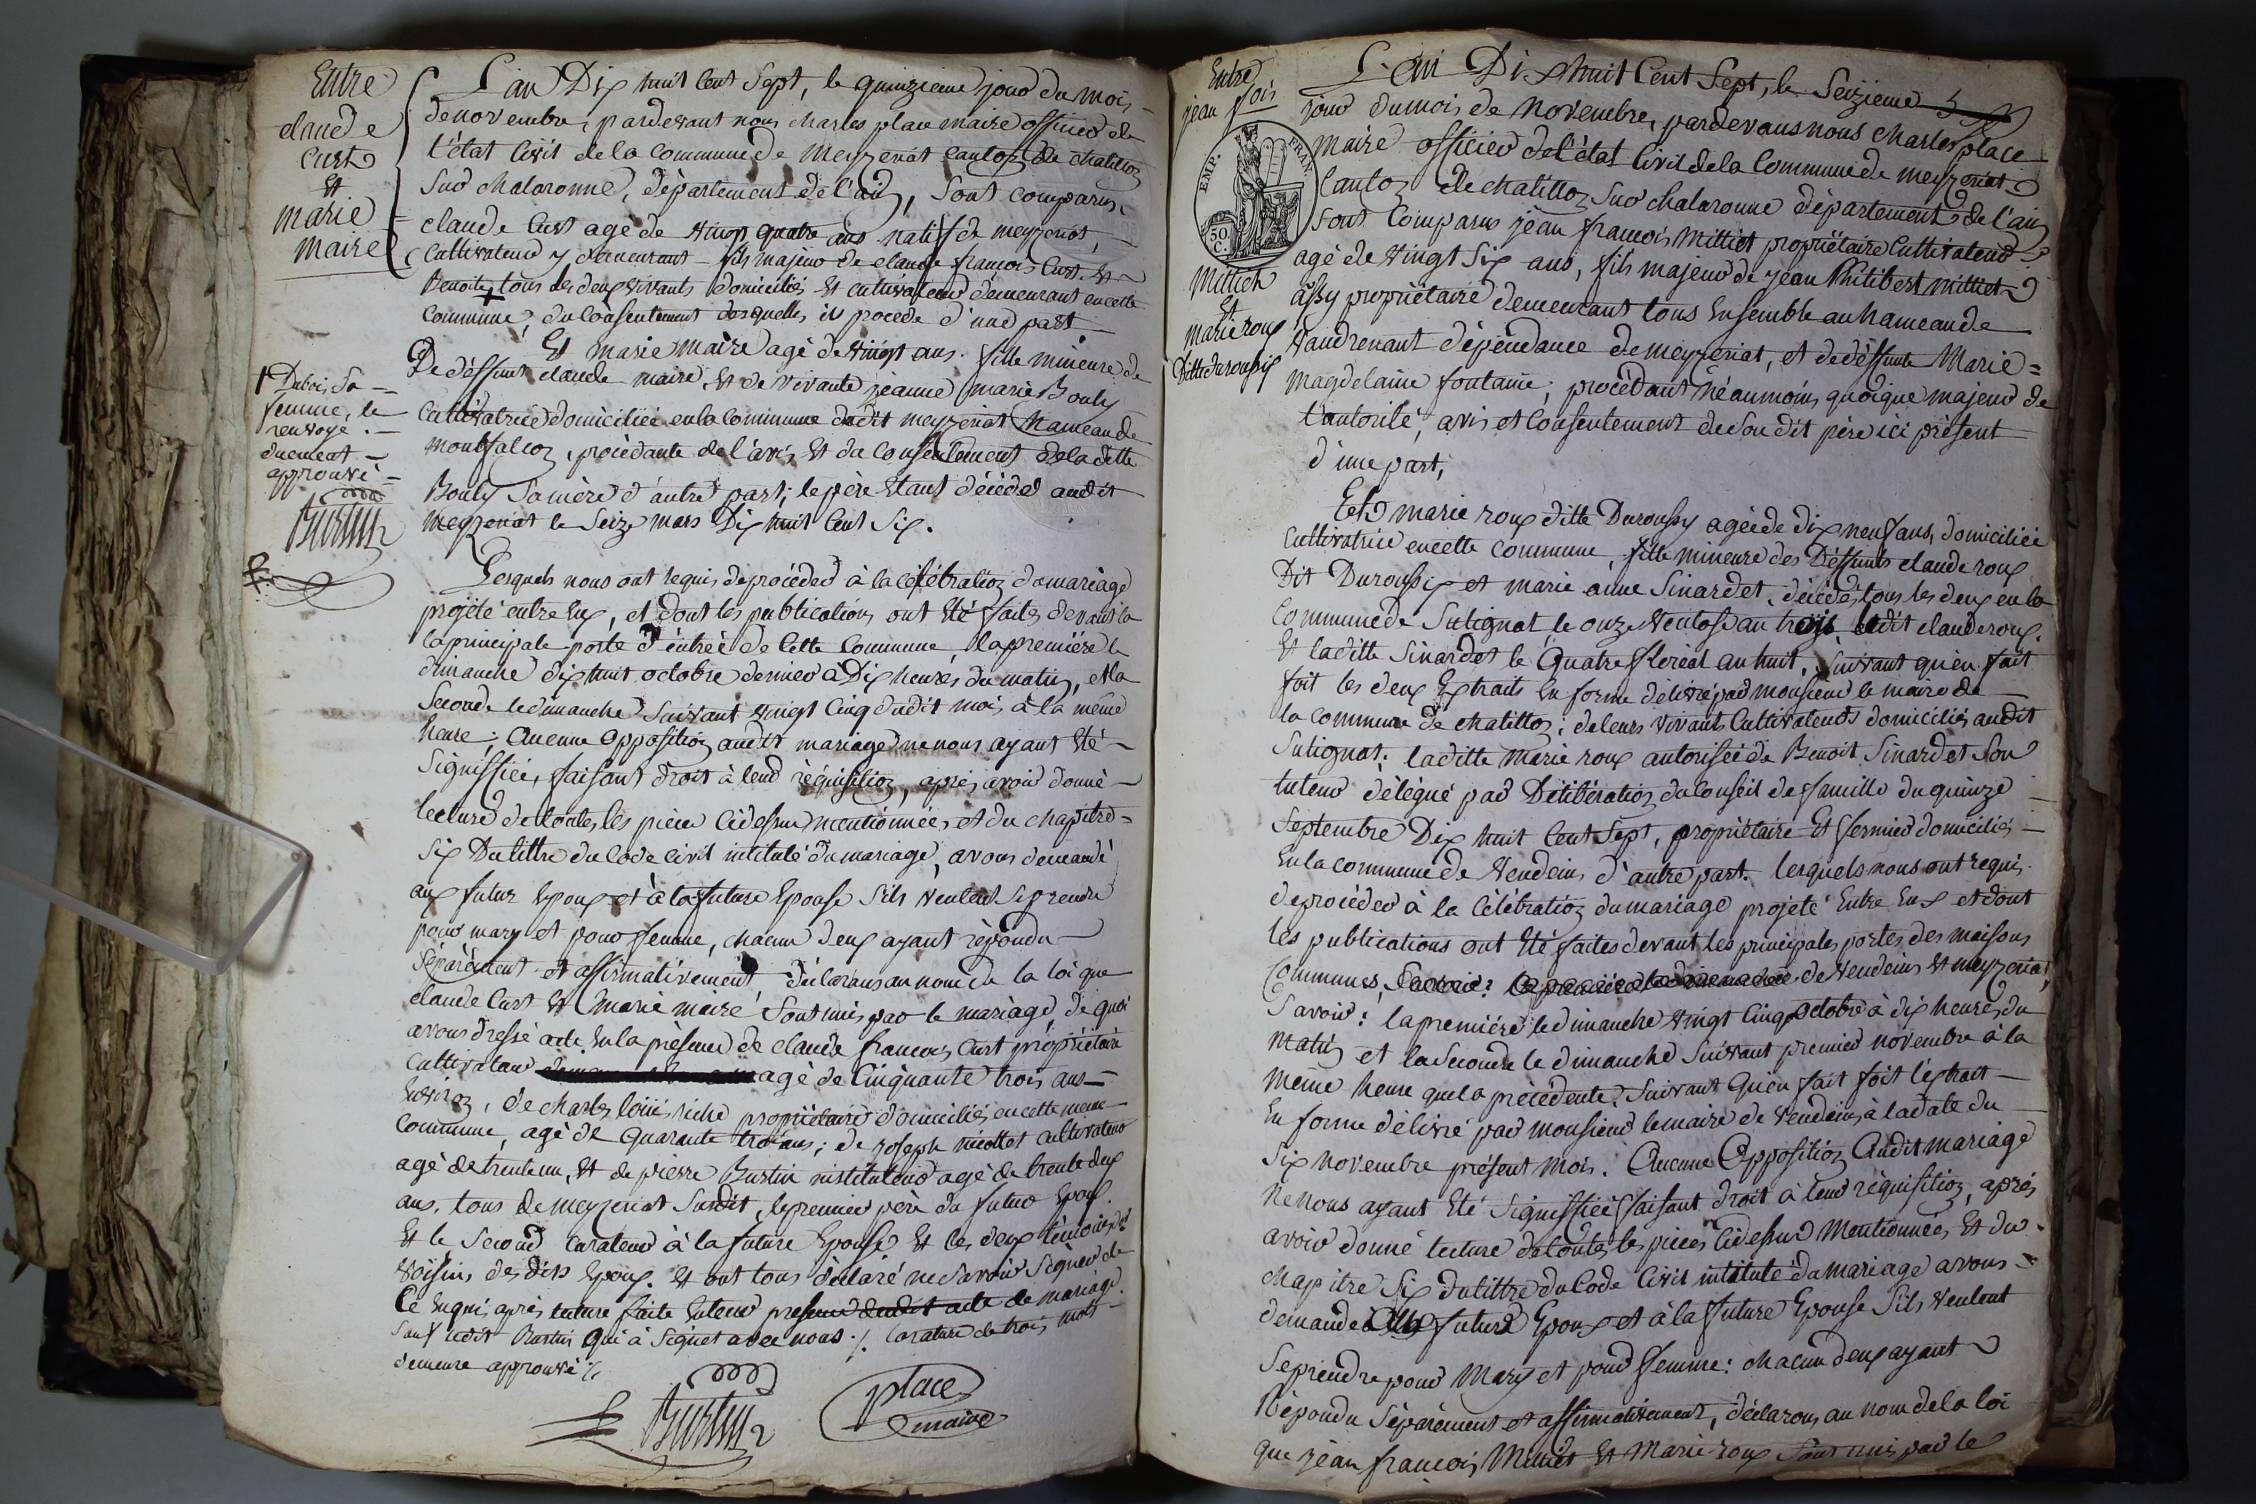 Entre
claude
Curt
Et
marie
maire
L'an Dix huit Cent Sept, le quinzieme jour du mois
de novembre, pardevant nous charles place maire officier de
l'état Civil de la Commune de meyzeriat canton de chatillon
Sur chalaronne, département de l'ain, Sont comparus
claude Curt agé de vingt quatre ans natif de meyzeriat,
Cultivateur y demeurant fils majeur de claude françois Curt et
Benoite + tous les deux vivants domiciliés et cultivateurs demeurant en cette
Commune, du Consentement desquelles il procede d'une part
Et marie maire agé de vingt ans. fille mineure de
De déffunt claude maire, et de vivante jeanne marie Bouly
Cultivatrice domiciliée en la Commune dudit meyzeriat hameau de
montfalcon, procédante de l'avis Et du Consentement de la ditte
Bouly Sa mère d'autre part; le père étant décédé audit
meyzeriat le Seize mars Dix huit Cent Six.
+ Dubois, Sa
femme, le
renvoye
duement
approuvé
Burtin
Lesquels nous ont requis de procéder à la célébration du mariage
projété entre Eux, et dont les publications ont été faites devant la
la principale porte d'éntrée de Cette Commune, la première le
dimanche dix huit octobre dernier à Dix heures du matin, et la
Seconde le dimanche Suivant vingt Cinq dudit mois à la même
heure; Aucune opposition audit mariage ne nous ayant été
Signiffiée, faisant droit à leur réquisition, après avoir donné
lecture de toutes les pièces Cidessus mentionnées, et du chapitre
Six Du tittre du Code Civil intitulé du mariage, avons demandé
aux futur Epoux et à la future Epouse S'ils veulent Se prendre
pour mary et pour femme, chacun d'eux ayant répondu
Séparément et affirmativement, déclarons au nom de la loi que
claude Curt et marie maire Sont unis par le mariage, de quoi
avons dressé acte En la présence de claude françois Curt propriétaire
Cultivateur agé de Cinquante trois ans
Environ, de charles riche propriétaire domicilié en cette meme
Commune, agé de quarante trois ans; de joseph cultivateur
agé de trente un, Et de pierre Burtin instituteur agé de trente deux
ans, tous de meyzeriat Susdit, le premier père du futur Epoux.
Et le Second Curateur à la future Epouse Et les deux témoins
voisins des dits Epoux. Et ont tous déclaré ne Savoir Signer de
Ce Enquis après lecture faite
Sauf ledit Burtin Qui à Signet avec nous ./. la rature de trois mots
demeure approuvé ./.
Burtin
place
maire
Entre
jean fois
EMP. FRAN.
50
C.
Milliet
Et
marie roux
ditte duroussy
L'an Dix huit Cent Sept, le Seizieme
jour du mois de Novembre, pardevant nous Charles place
maire officier de l'état Civil de la Commune de meyzeriat
Canton de chatillon Sur chalaronne département de l'ain
Sont Comparus jean françois Milliet propriétaire Cultivateur
agé de vingt Six ans, fils majeur de jean Philibert milliet
assy propriétaire demeurant tous Ensemble au hameau de
vaudrenant dépéndance de meyzeriat, et de déffunte Marie
magdelaine fontaine; procédant néaumoins quoique majeur de
l'autorité, avis et Consentement de Son dit père ici présent
d'une part,
Et marie roux ditte Duroussy agée de dix neuf ans, domiciliée
Cultivatrice en cette Commune, fille mineure des Deffunts claude roux
Dit Duroussy et marie anne Sinardet, décédés tous les deux en la
Commune de Sulignat le onze ventose an trois, ledit claude roux.
Et la ditte Sinardet le Quatre floréal an huit, Suivant qu'en fait
foit les deux Extraits En forme délivré par monsieur le maire de
la Commune de chatillon; de leurs vivants Cultivateurs domiciliés audit
Sulignat. la ditte Marie roux autorisée de Benoit Sinardet Son
tuteur délégué par Délibération du Conseil de famille du quinze
Septembre Dix huit Cent Sept, propriétaire Et fermier domiciliés
En la commune de Vendeins d'autre part. lesquels nous ont requis
de procéder à la Célébration du mariage projété Entre Eux et dont
les publications ont été faites devant les principales portes des maisons
Communes, de Vendeins Et meyzeriat,
Savoir: la première le dimanche vingt Cinq octobre à dix heures du
matin et la Seconde le dimanche Suivant premier novembre à la
même heure que la précédente. Suivant Qu'en fait foit l'éxtrait
En forme délivré par monsieur le maire de Vendeins, à la date du
Six novembre présent mois. Aucune Opposition Audit mariage
Ne nous ayant Eté Signiffiée faisant droit à leur réquisition, après
avoir donné lecture de toutes les pièces Cidessus Mentionnées, Et du
chapitre Six du tittre du Code Civil intitulé du mariage avons
demandé aux futur Epoux et à la future Epouse S'ils veulent
Se prendre pour Mary et pour femme: chacun d'eux ayant
Répondu Séparément et affirmativement, déclarons au nom de la loi
que jean françois Milliet Et Marie roux Sont unis par le